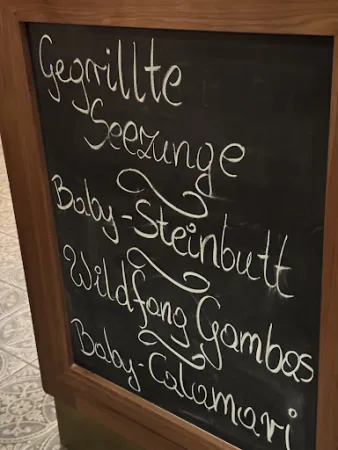 Gegrillte
Seezunge
Baby-Steinbutt
Wildfang Gambas
Baby-Calamari